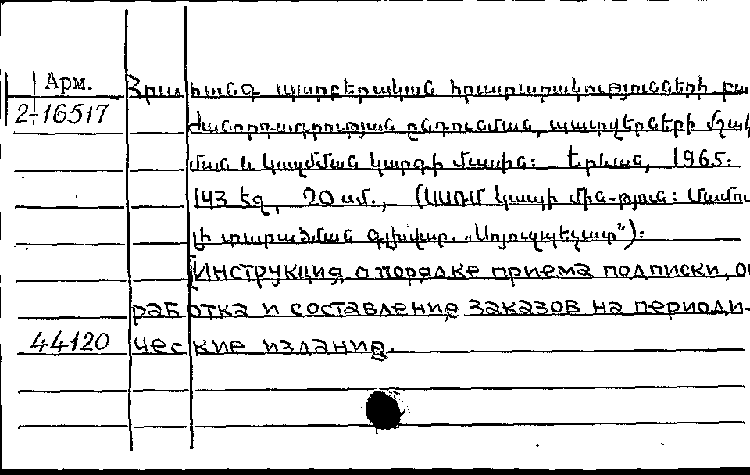 Арм.
2-16517
Հրահանգ պարբերական հրատարակությունների բա
ժանորդագրության ընդունման, պատվերների մշակ
ման և կազմման կարգի մասին: Երևան, 1965:
143 էջ, 20 սմ., (ՍՍՌՄ կապի մին-թյուն: Մամու
լի տարածման գլխավր. „Սոյուզպեչատ"):
[Инструкция о порядке приема подписки, о
работка и составление заказов на периоди-
ческие издание.
44120